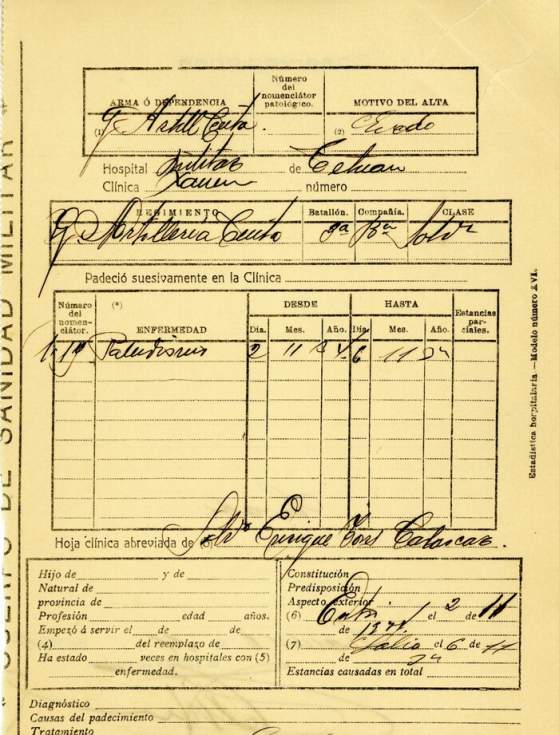 CUERPO DE SANIDAD MILITAR
ARMA Ó DEPENDENCIA
Número del nomenclátor patológico.
MOTIVO DEL ALTA
(1) Artill Ceuta. (2)
Hospital Militar de Tetuan
Clínica número
REGIMIENTO Batallón. Compañía. CLASE
Artilleria Ceuta 3ª Soldº
Padeció suesivamente en la Clínica
Número del nomen- clátor. (*) ENFERMEDAD
DESDE HASTA
Día. Mes. Año. Día. Mes. Año.
Estancias par- ciales.
Paludismo 2 11 6 11 24
Estadística hospitalaria.—Modelo número XVI.
Hoja clínica abreviada de (5) Soldº Enrique
Hijo de y de
Natural de
provincia de
Profesión edad años.
Empezó á servir el de de
(4) del reemplazo de
Ha estado veces en hospitales con (5)
enfermedad.
Constitución
Predisposición
Aspecto exterior
(6) el 2 de 11
de 1924.
(7) Salió el 6 de 11
de 24
Estancias causadas en total
Diagnóstico
Causas del padecimiento
Tratamiento